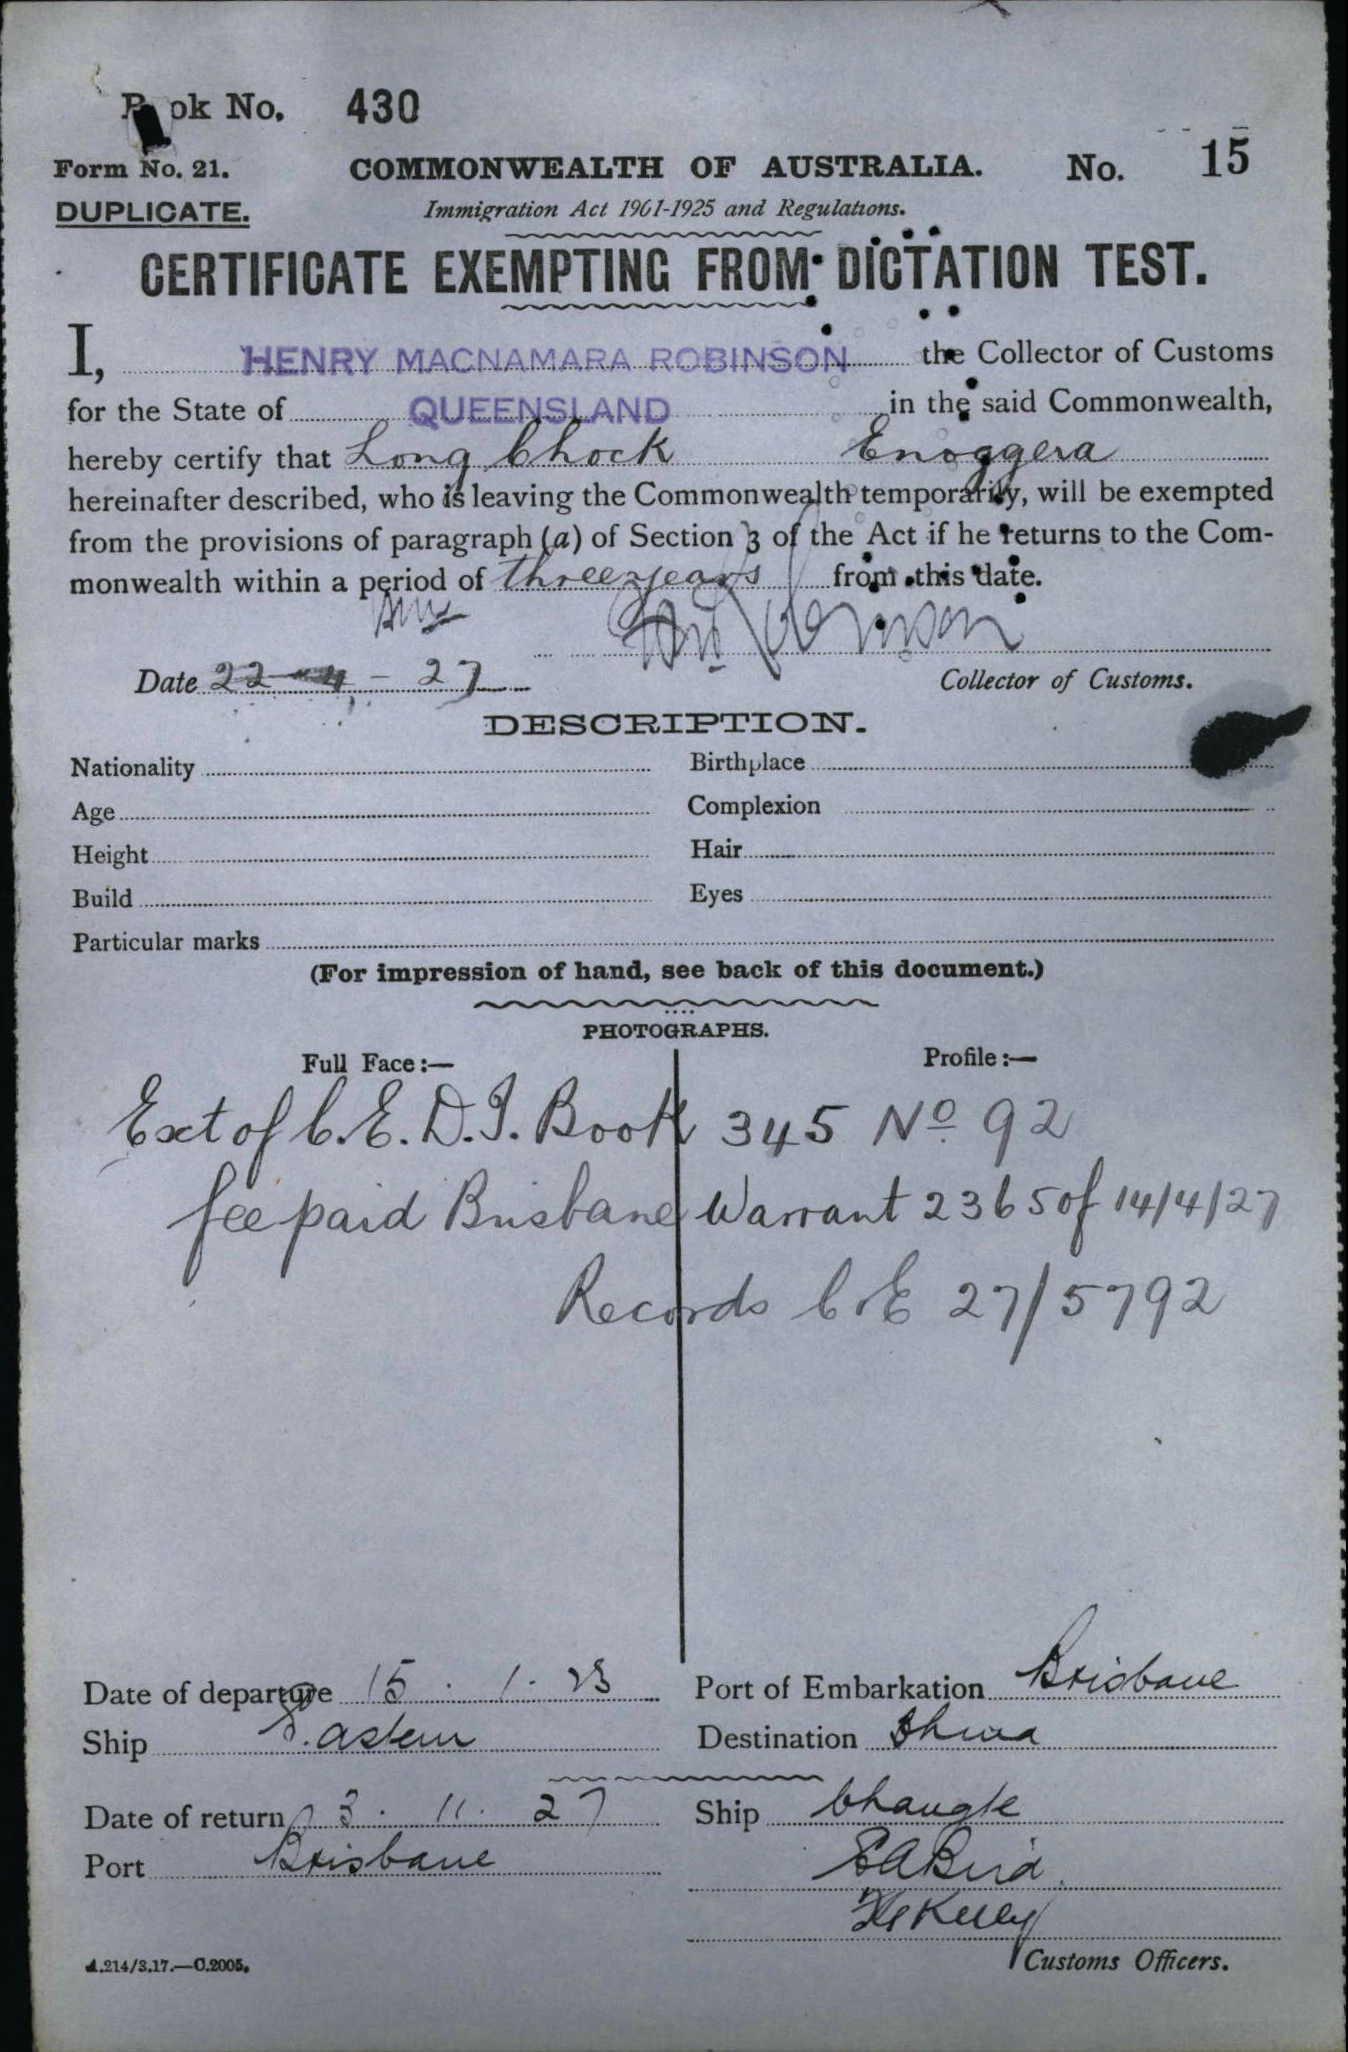 Book No. 430
Form No. 21. COMMONWEALTH OF AUSTRALIA. No. 15
DUPLICATE. Immigration Act 1901-1925 and Regulations.
CERTIFICATE EXEMPTING FROM DICTATION TEST.
I, HENRY MACNAMARA ROBINSON the Collector of Customs
for the State of QUEENSLAND in the said Commonwealth,
hereby certify that Long Chock Enoggera
hereinafter described, who is leaving the Commonwealth temporarily, will be exempted
from the provisions of paragraph (a) of Section 3 of the Act if he returns to the Com-
monwealth within a period of three years from this date.
Date 22-4-27 Collector of Customs.
DESCRIPTION.
Nationality Birthplace
Age Complexion
Height Hair
Build Eyes
Particular marks
(For impression of hand, see back of this document.)
PHOTOGRAPHS.
Full Face:— Profile:—
Ext of C.E.D.T. Book 345 No 92
fee paid Brisbane Warrant 2365 of 14/4/27
Records C & E 27/5792
Date of departure 15 . 1 . 23 Port of Embarkation Brisbane
Ship Eastern Destination China
Date of return 3 . 11 . 27 Ship Changte
Port Brisbane E A Bird
Kelly
Customs Officers.
A.214/3.17.—C.2005.